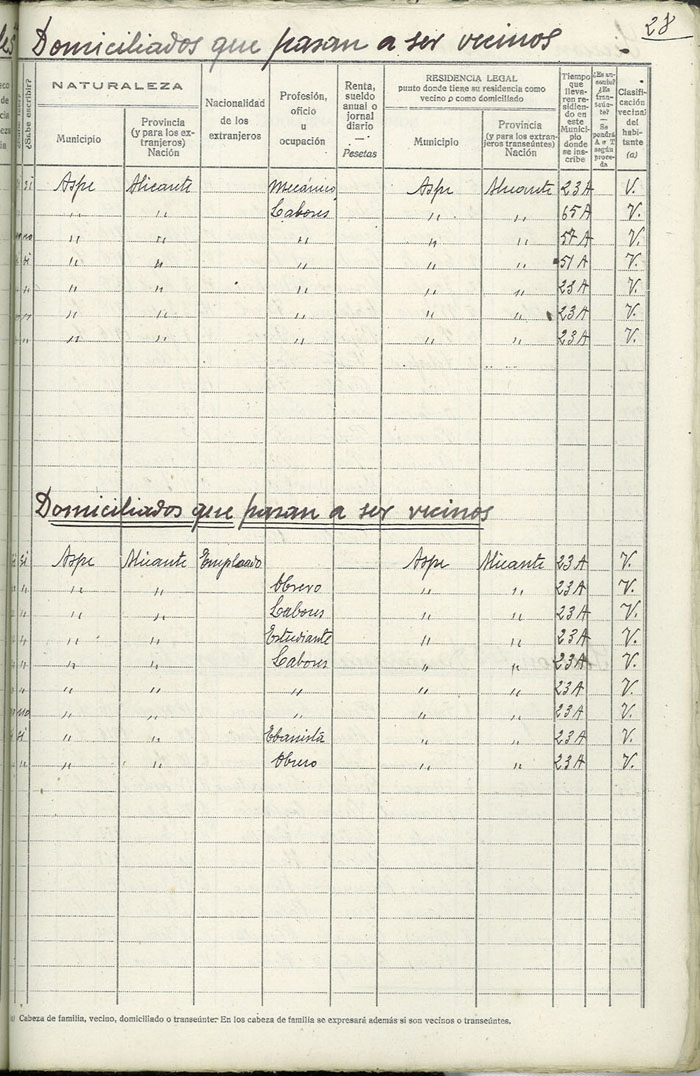 28
Domiciliados que pasan a ser vecinos
¿Sabe escribir?
NATURALEZA
Municipio
Provincia (y para los extranjeros) Nación
Nacionalidad de los extranjeros
Profesión, oficio u ocupación
Renta, sueldo anual o jornal diario — Pesetas
RESIDENCIA LEGAL
punto donde tiene su residencia como vecino o como domiciliado
Municipio
Provincia (y para los extranjeros transeúntes) Nación
Tiempo que llevaren residiendo en este Municipio donde se inscribe
¿Es ausente? ¿Es transeúnte? — Se pondrá A o T según proceda
Clasificación vecinal del habitante (a)
si Aspe Alicante Mecánico Aspe Alicante 23 A V.
" " Labores " " 65 A V.
no " " " " " 57 A V.
si " " " " " 51 A V.
" " " " " " 23 A V.
" " " " " " 23 A V.
" " " " " " 23 A V.
Domiciliados que pasan a ser vecinos
si Aspe Alicante Empleado Aspe Alicante 23 A V.
" " " Obrero " " 23 A V.
" " " Labores " " 23 A V.
" " " Estudiante " " 23 A V.
" " " Labores " " 23 A V.
" " " " " " 23 A V.
no " " " " " 23 A V.
si " " Ebanista " " 23 A V.
" " " Obrero " " 23 A V.
Cabeza de familia, vecino, domiciliado o transeúnte. En los cabeza de familia se expresará además si son vecinos o transeúntes.